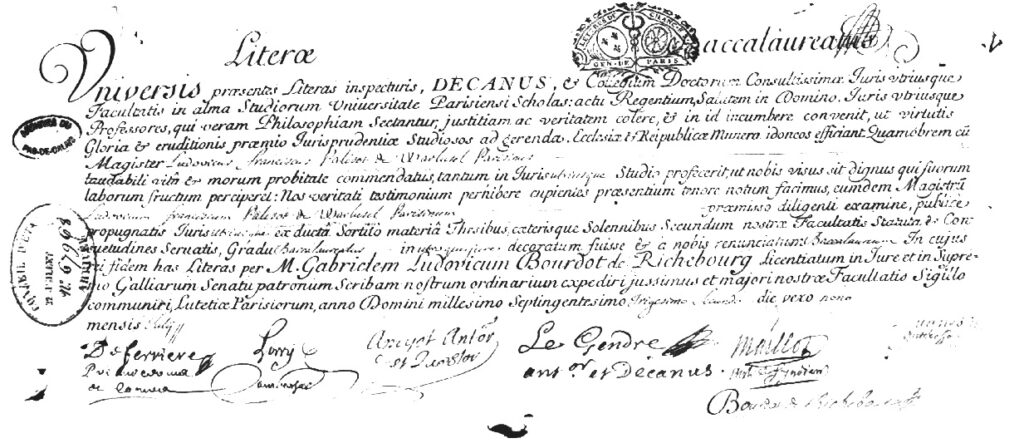 Literæ Baccalaureatus
GEN. DE PARIS
Universis præsentes Literas inspecturis, DECANUS, & Collegium Doctorum Consultissimæ Juris vtriusque
Facultatis in alma Studiorum Universitate Parisiensi Scholas: actu Regentium, Salutem in Domino. Juris vtriusque
Professores, qui veram Philosophiam Sectantur, justitiam ac veritatem colere, & in id incumbere convenit, ut virtutis
Gloria & eruditionis præmio Jurisprudentiæ Studiosos ad gerenda. Ecclesiæ & Reipublicæ Munera idoneos efficiant. Quamobrem cū
Magister Ludovicus franciscus Palisot de Warlusel Parisinus
laudabili vitæ & morum probitate commendatus, tantum in Jure utroque Studio profecerit, ut nobis visus sit dignus qui suorum
laborum fructum perciperet: Nos veritati testimonium perhibere cupientes præsentium tenore notum facimus, eumdem Magistrū
Ludovicum franciscum Palisot de Warlusel Parisinum præmisso diligenti examine, publice
propugnatis Juris ex ductâ Sortitò materiâ Thesibus, cæterisque Solennibus Secundum nostræ Facultatis Statuta & Con
suetudines Servatis, Gradu Baccalaureatus in utroque jure decoratum fuisse & a nobis renunciatum Baccalaureum In cujus
rei fidem has Literas per M. Gabrielem Ludovicum Bourdot de Richebourg Licentiatum in Jure et in Supre
mo Galliarum Senatu patronum Scribam nostrum ordinarium expediri jussimus et majori nostræ Facultatis Sigillo
communiri, Lutetiæ Parisiorum, anno Domini millesimo Septingentesimo trigesimo die vero nono
mensis Julij
De Ferriere Lorry Amyot Antor Le Gendre Maillot
et Quæstor antor et Decanus.
Bourdot de Richebourg